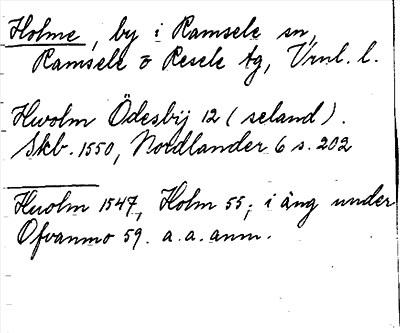 Holme, by i Ramsele sn,
Ramsele o Resele tg, Vrnl. l.
Hwolm Ödesbij 12 (seland).
Skb. 1550, Nordlander 6 s. 202
Huolm 1547, Holm 55; i äng under
Ofvanmo 59. a.a. anm.